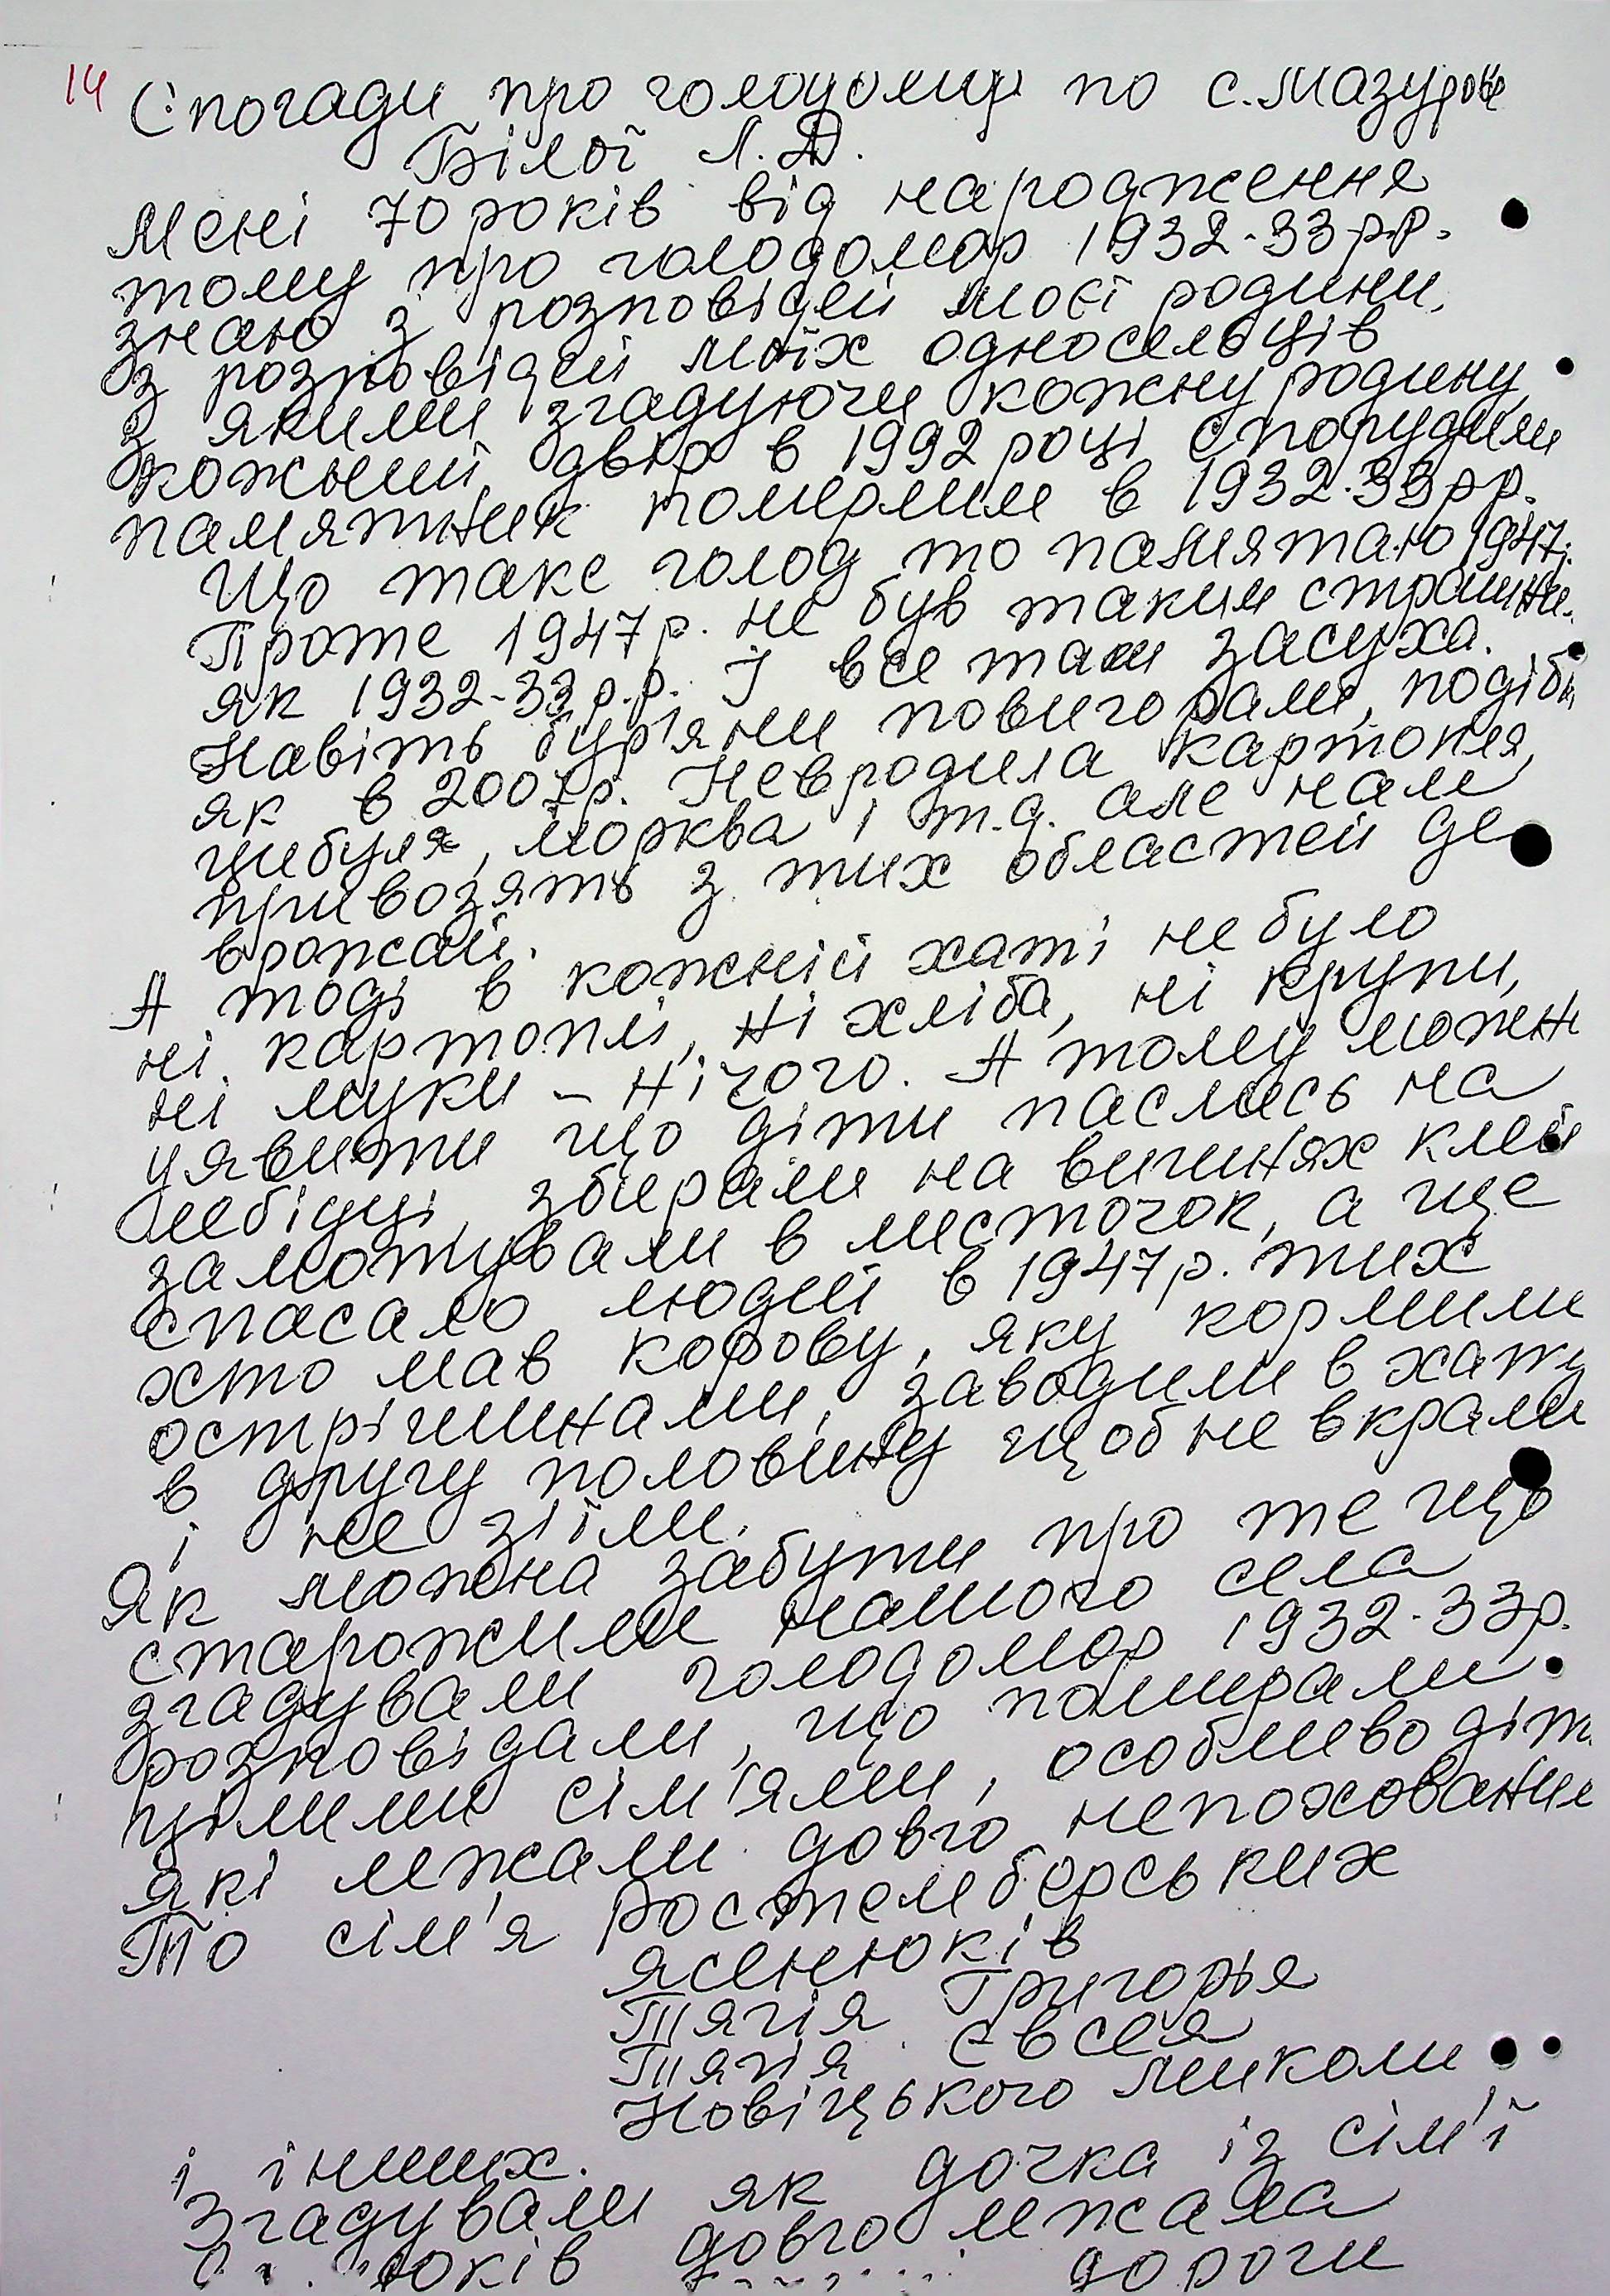 14
Спогади про голодомор по с. Мазурове
Білої Л. Д.
Мені 70 років від народження
тому про голодомор 1932-33 рр.
знаю з розповідей моєї родини,
з розповідей моїх односельців
з якими згадуючи кожну родину,
кожний двір в 1992 році спорудили
памятник померлим в 1932-33 рр.
Що таке голод то памятаю 1947
Проте 1947 р. не був таким страшни
як 1932-33 р.р. І все таки засуха.
Навіть бур'яни повигорали, подібн
як в 2007 р. Невродила картопля,
цибуля, морква і т.д. але нам
привозять з тих областей де
врожай.
А тоді в кожній хаті не було
ні картоплі, ні хліба, ні крупи,
ні муки - нічого. А тому можн
уявити що діти паслись на
лебідці, збирали на вишнях клей
замотували в листочок, а ще
спасало людей в 1947 р. тих
хто мав корову, яку кормили
острішинами, заводили в хату
в другу половину щоб не вкрали
і не зїли.
Як можна забути про те що
старожили нашого села
згадували голодомор 1932-33 р.
розповідали, що помирали
цілими сім'ями, особливо діт
які лежали довго непоховані
То сім'я Ростемберських
Ясенюків
Тягія Григорія
Тягія Євсея
Новіцького Миколи
і інших.
Згадували як дочка із сім'ї
юків довго лежала
дороги